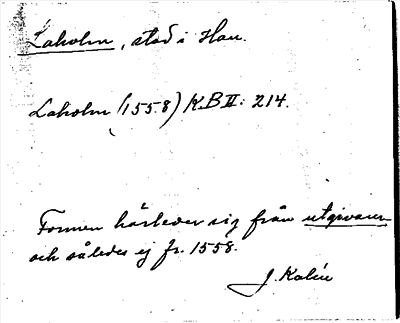 Laholm, stad i Hall.
Laholm (1558) KB II: 214.
Formen härleder sig från utgivaren
och således ej fr. 1558.
J. Kalén